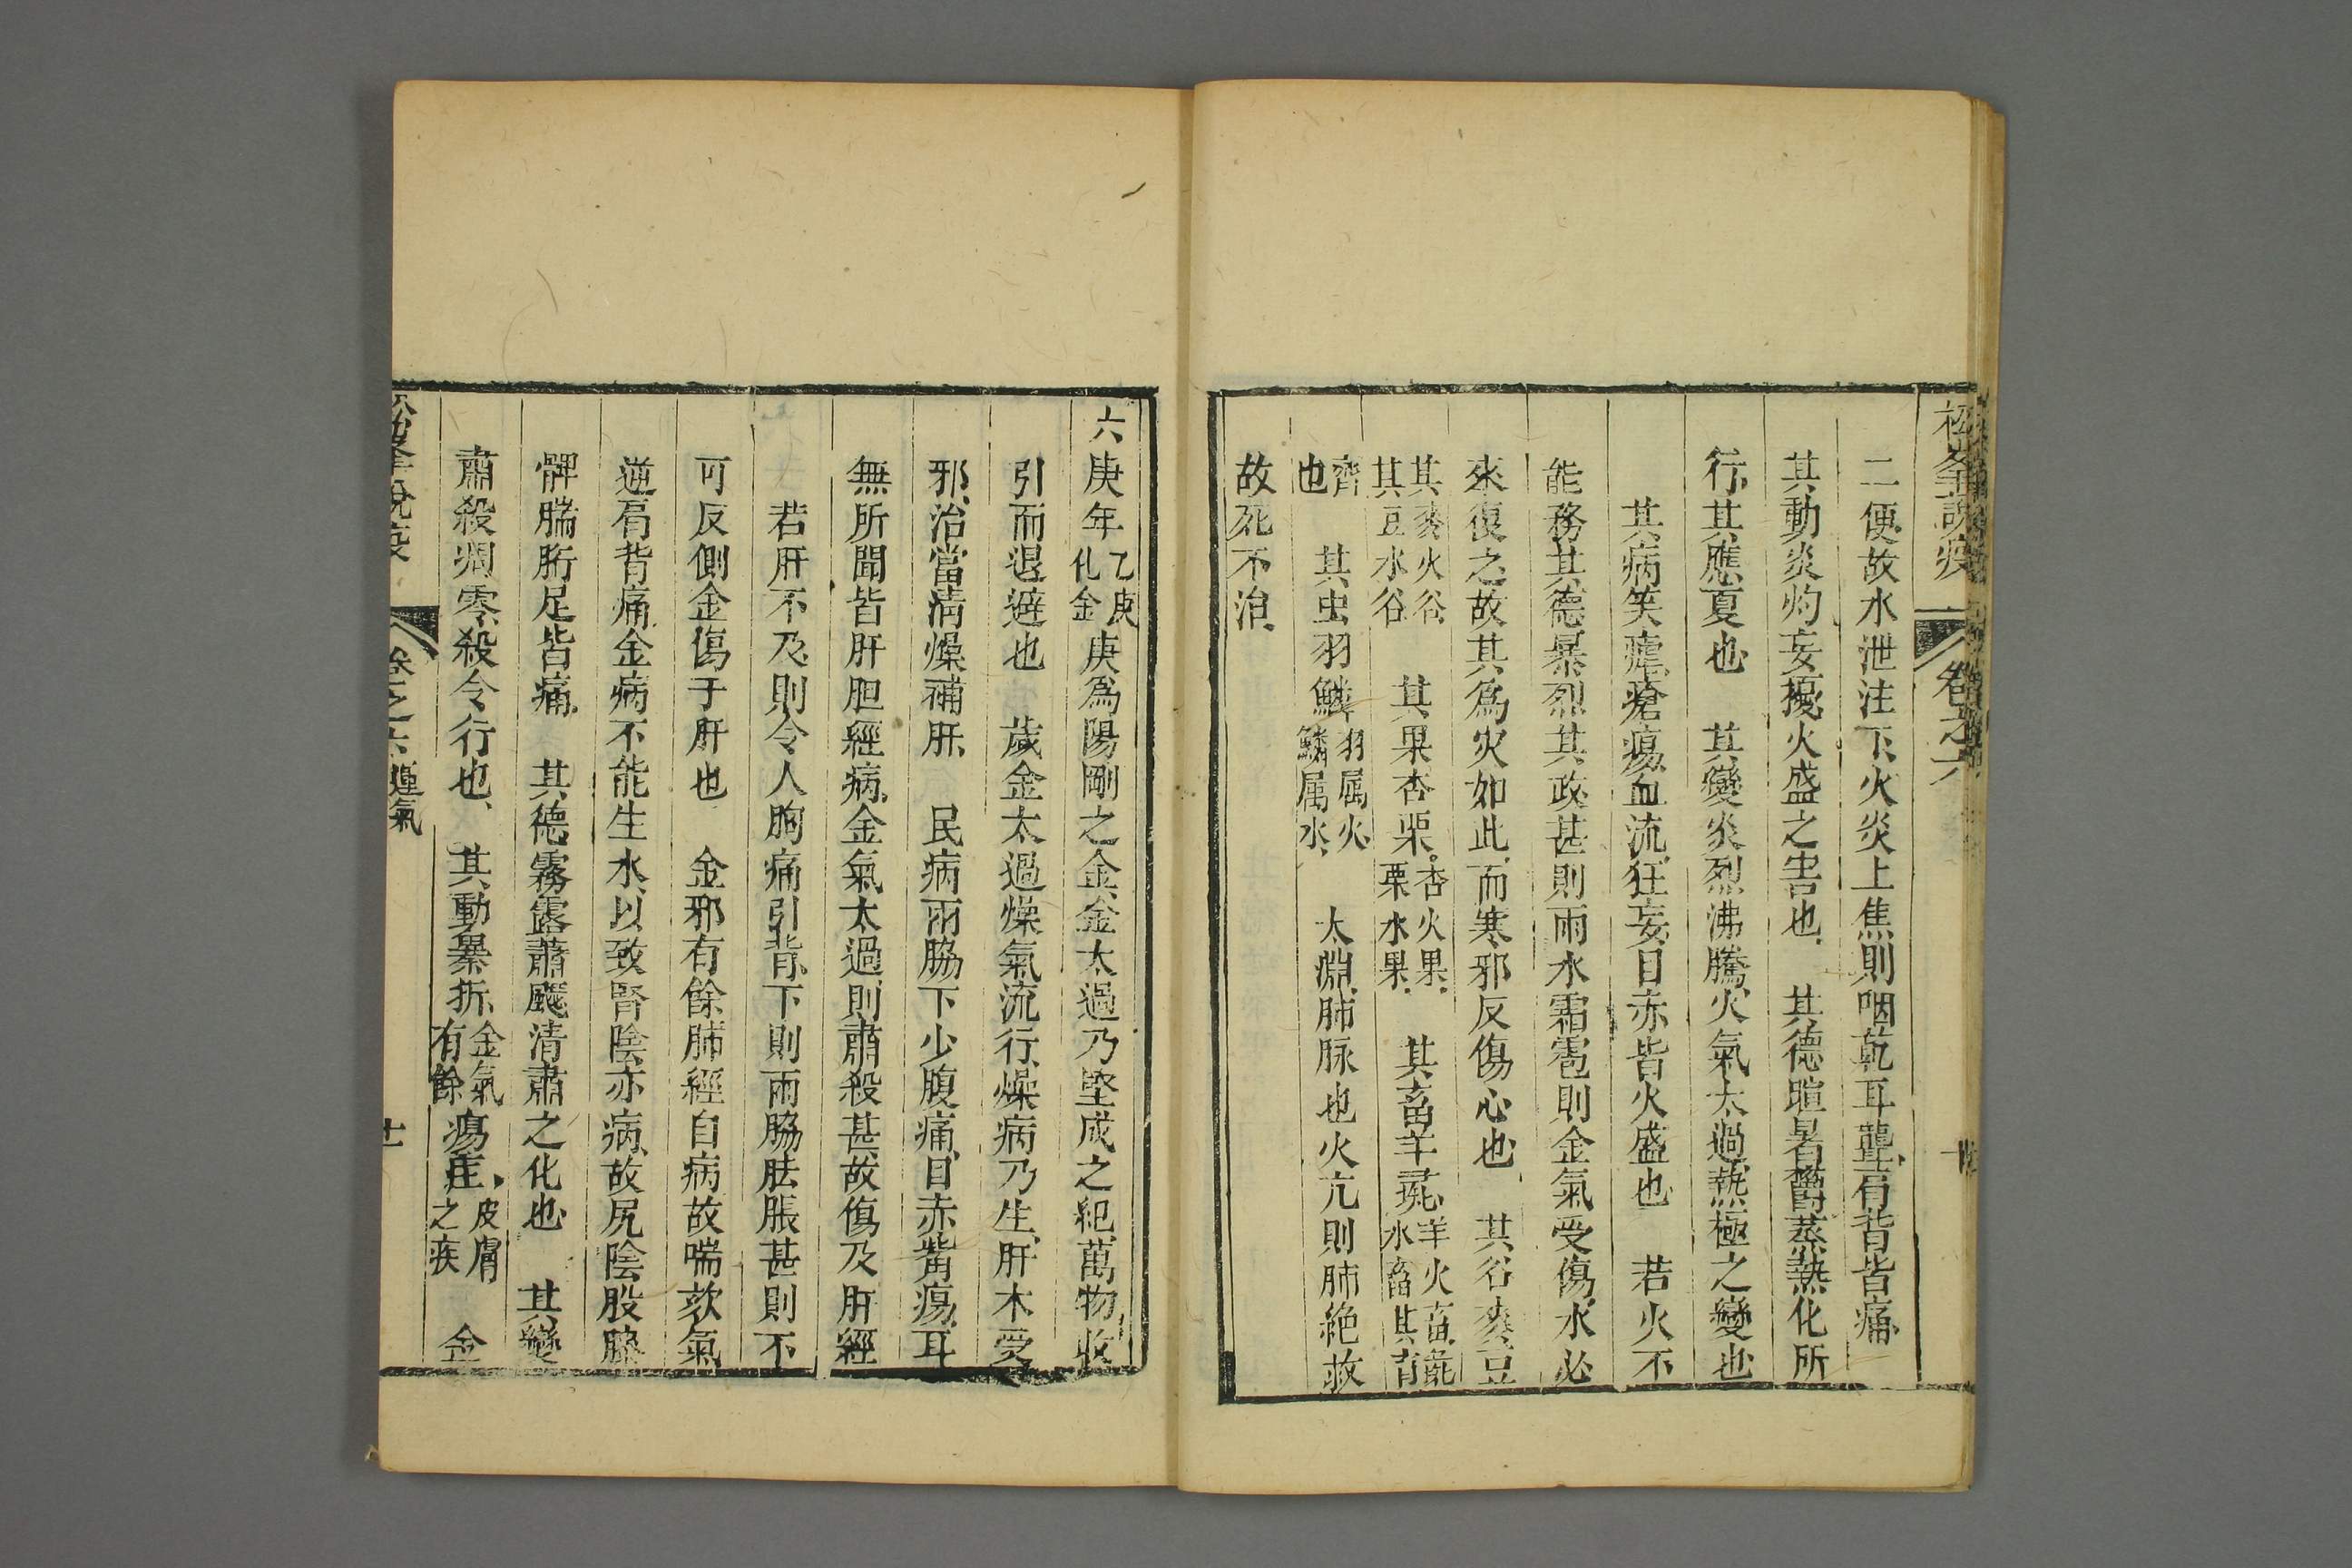 松峯說疫
卷之六
二便故水泄注下火炎上焦則咽乾耳聾肩背皆痛
其動炎灼妄擾火盛之害也 其德暄暑鬱蒸熱化所
行其應夏也 其變炎烈沸騰火氣太過熱極之變也
其病笑瘧瘡瘍血流狂妄目赤皆火盛也 若火不
能務其德暴烈其政甚則雨水霜雹則金氣受傷水必
來復之故其為災如此而寒邪反傷心也 其谷麥豆
其麥火谷
其豆水谷
其果杏栗
杏火果
栗水果
其畜羊彘
羊火畜彘
水畜其育
齊
也
其虫羽鱗
羽属火
鱗属水
太淵肺脉也火亢則肺絶故
故死不治
六庚年
乙庚
化金
庚爲陽剛之金金太過乃堅成之紀萬物收
引而退避也 歲金太過燥氣流行燥病乃生肝木受
邪治當清燥補肝 民病兩脇下少腹痛目赤眥瘍耳
無所聞皆肝胆經病金氣太過則肅殺甚故傷及肝經
若肝不及則令人胸痛引背下則兩脇胠脹甚則不
可反側金傷于肝也 金邪有餘肺經自病故喘欬氣
逆肩背痛金病不能生水以致腎陰亦病故尻陰股膝
髀腨胻足皆痛 其德霧露蕭飋清肅之化也 其變
肅殺凋零殺令行也 其動暴折
金氣
有餘
瘍疰
皮膚
之疾
金
松峯說疫
卷之六
運氣
十一